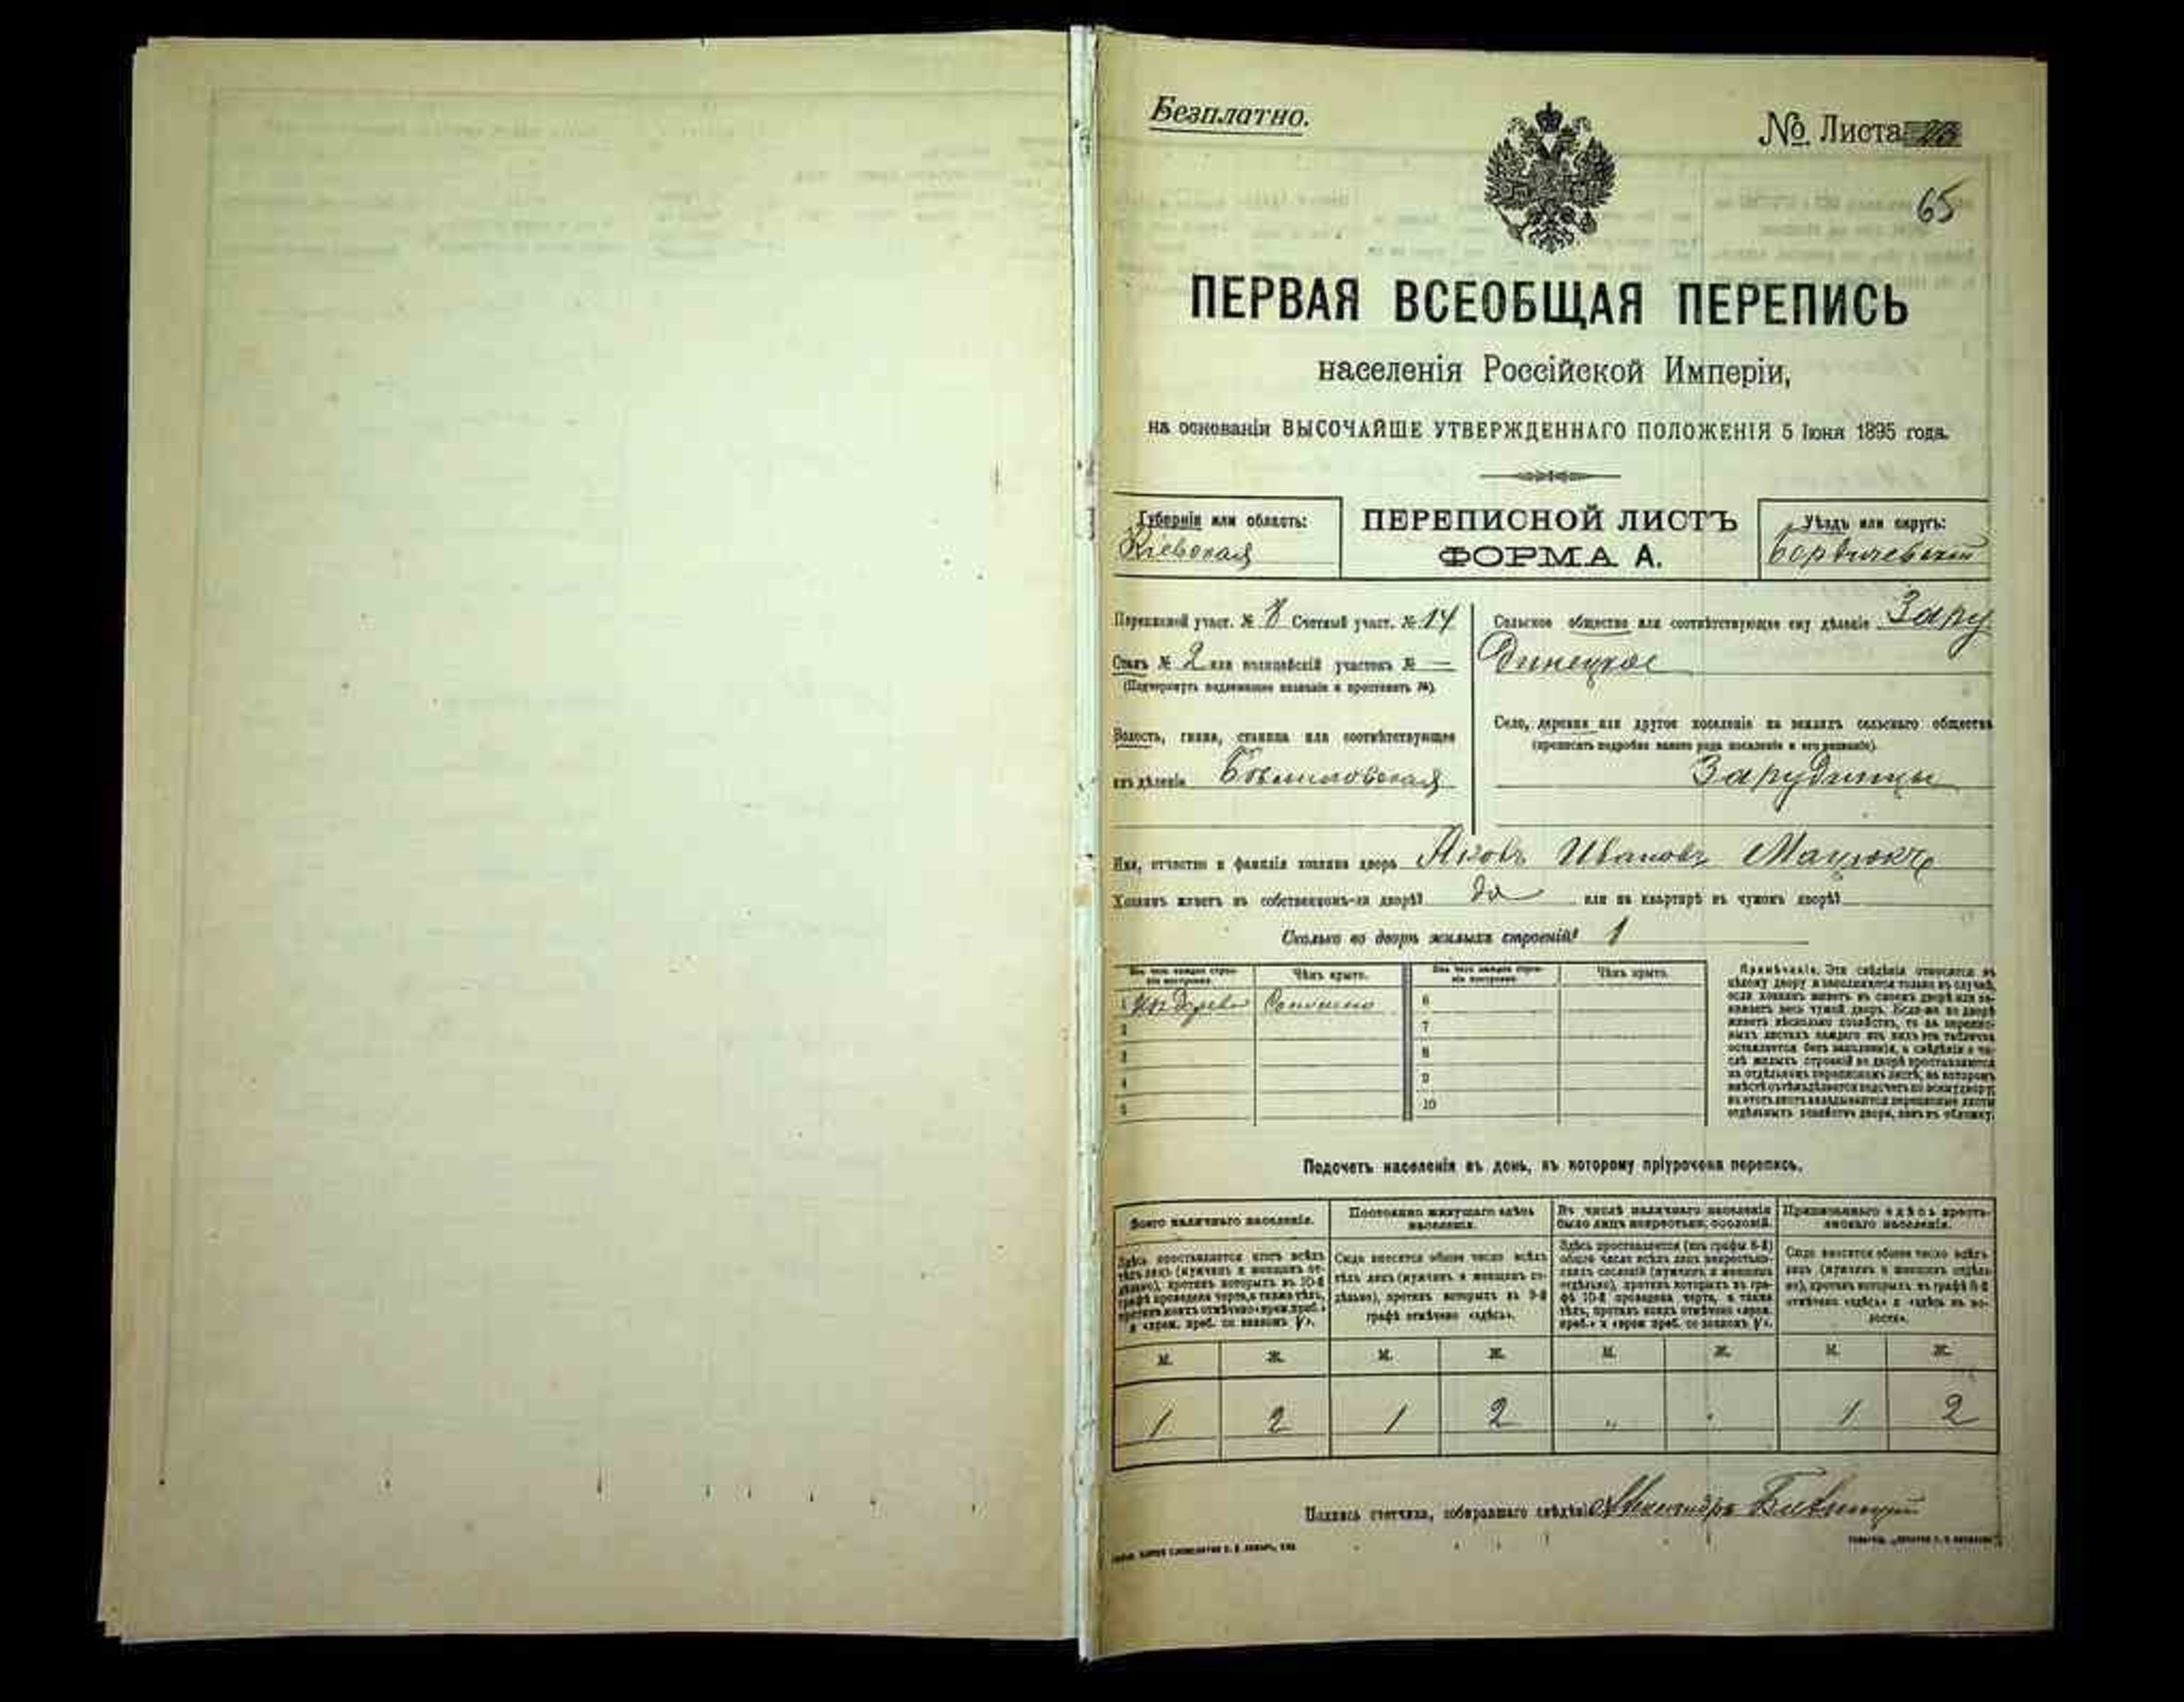 Безплатно.
№ Листа
65
ПЕРВАЯ ВСЕОБЩАЯ ПЕРЕПИСЬ
населенія Россійской Имперіи,
на основаніи ВЫСОЧАЙШЕ УТВЕРЖДЕННАГО ПОЛОЖЕНІЯ 5 Іюня 1895 года.
Губернія или область:
Кіевская
ПЕРЕПИСНОЙ ЛИСТЪ
ФОРМА А.
Уѣздъ или округъ:
Бердичевскій
Переписной участ. № 8 Счетный участ. № 14
Станъ № 2 или полицейскій участокъ № —
(Подчеркнуть подлежащее названіе и проставить №).
Волость, гмина, станица или соотвѣтствующее
имъ дѣленіе
Сельское общество или соотвѣтствующее ему дѣленіе Зару
динецкое
Село, деревня или другое поселеніе на земляхъ сельскаго общества
(прописать подробно какого рода поселеніе и его названіе).
Зарудинцы
Имя, отчество и фамилія хозяина двора Яковъ Ивановъ Мацюкъ
Хозяинъ живетъ въ собственномъ-ли дворѣ? да или на квартирѣ въ чужомъ дворѣ?
Сколько во дворѣ жилыхъ строеній? 1
Изъ чего каждое строе-
ніе построено.
Чѣмъ крыто.
Изъ чего каждое строе-
ніе построено.
Чѣмъ крыто.
1 изъ дерева Соломою
2
3
4
5
6
7
8
9
10
Примѣчаніе. Эти свѣдѣнія относятся къ
цѣлому двору и заполняются только въ случаѣ,
если хозяинъ живетъ въ своемъ дворѣ или за-
нимаетъ весь чужой дворъ. Если-же во дворѣ
живетъ нѣсколько хозяйствъ, то на перепис-
ныхъ листахъ каждаго изъ нихъ эта табличка
оставляется безъ заполненія, а свѣдѣнія о чи-
слѣ жилыхъ строеній во дворѣ проставляются
на отдѣльномъ переписномъ листѣ, на которомъ
вмѣстѣ съ тѣмъ дѣлается подсчетъ по всему двору;
въ этотъ листъ вкладываются переписные листы
отдѣльныхъ хозяйствъ двора, какъ въ обложку.
Подсчетъ населенія въ день, къ которому пріурочена перепись.
Всего наличнаго населенія.
Здѣсь проставляется итогъ всѣхъ
тѣхъ лицъ (мужчинъ и женщинъ от-
дѣльно), противъ которыхъ въ 10-й
графѣ проведена черта, а также тѣхъ,
противъ коихъ отмѣчено «врем. преб.»
и «врем. преб. со знакомъ V».
Постоянно живущаго здѣсь
населенія.
Сюда вносится общее число всѣхъ
тѣхъ лицъ (мужчинъ и женщинъ от-
дѣльно), противъ которыхъ въ 9-й
графѣ отмѣчено «здѣсь».
Въ числѣ наличнаго населенія
было лицъ некрестьян. сословій.
Здѣсь проставляется (изъ графы 6-й)
общее число всѣхъ лицъ некрестьян-
скихъ сословій (мужчинъ и женщинъ
отдѣльно), противъ которыхъ въ гра-
фѣ 10-й проведена черта, а также
тѣхъ, противъ коихъ отмѣчено «врем.
преб.» и «врем. преб. со знакомъ V».
Приписаннаго здѣсь кресть-
янскаго населенія.
Сюда вносится общее число всѣхъ
лицъ (мужчинъ и женщинъ отдѣль-
но), противъ которыхъ въ графѣ 8-й
отмѣчено «здѣсь» и «здѣсь въ во-
лости».
М. Ж. М. Ж. М. Ж. М. Ж.
1 2 1 2 " " 1 2
Подпись счетчика, собиравшаго свѣдѣнія Александръ